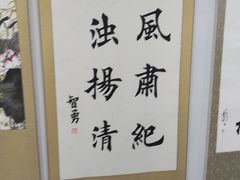 風肅紀
浊揚清
智勇